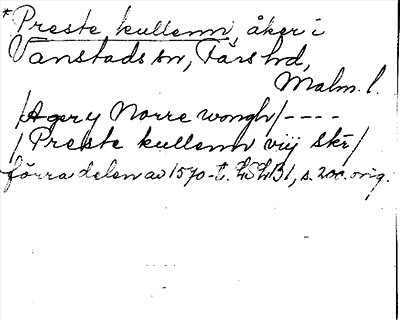 *Preste kullenn, åker i
Vanstads sn, Färs hd,
Malm. l.
/Agery Norre wongh/----
/Preste kullenn viij skr/
förra delen av 1570-t. LSLB1, s. 200. orig.